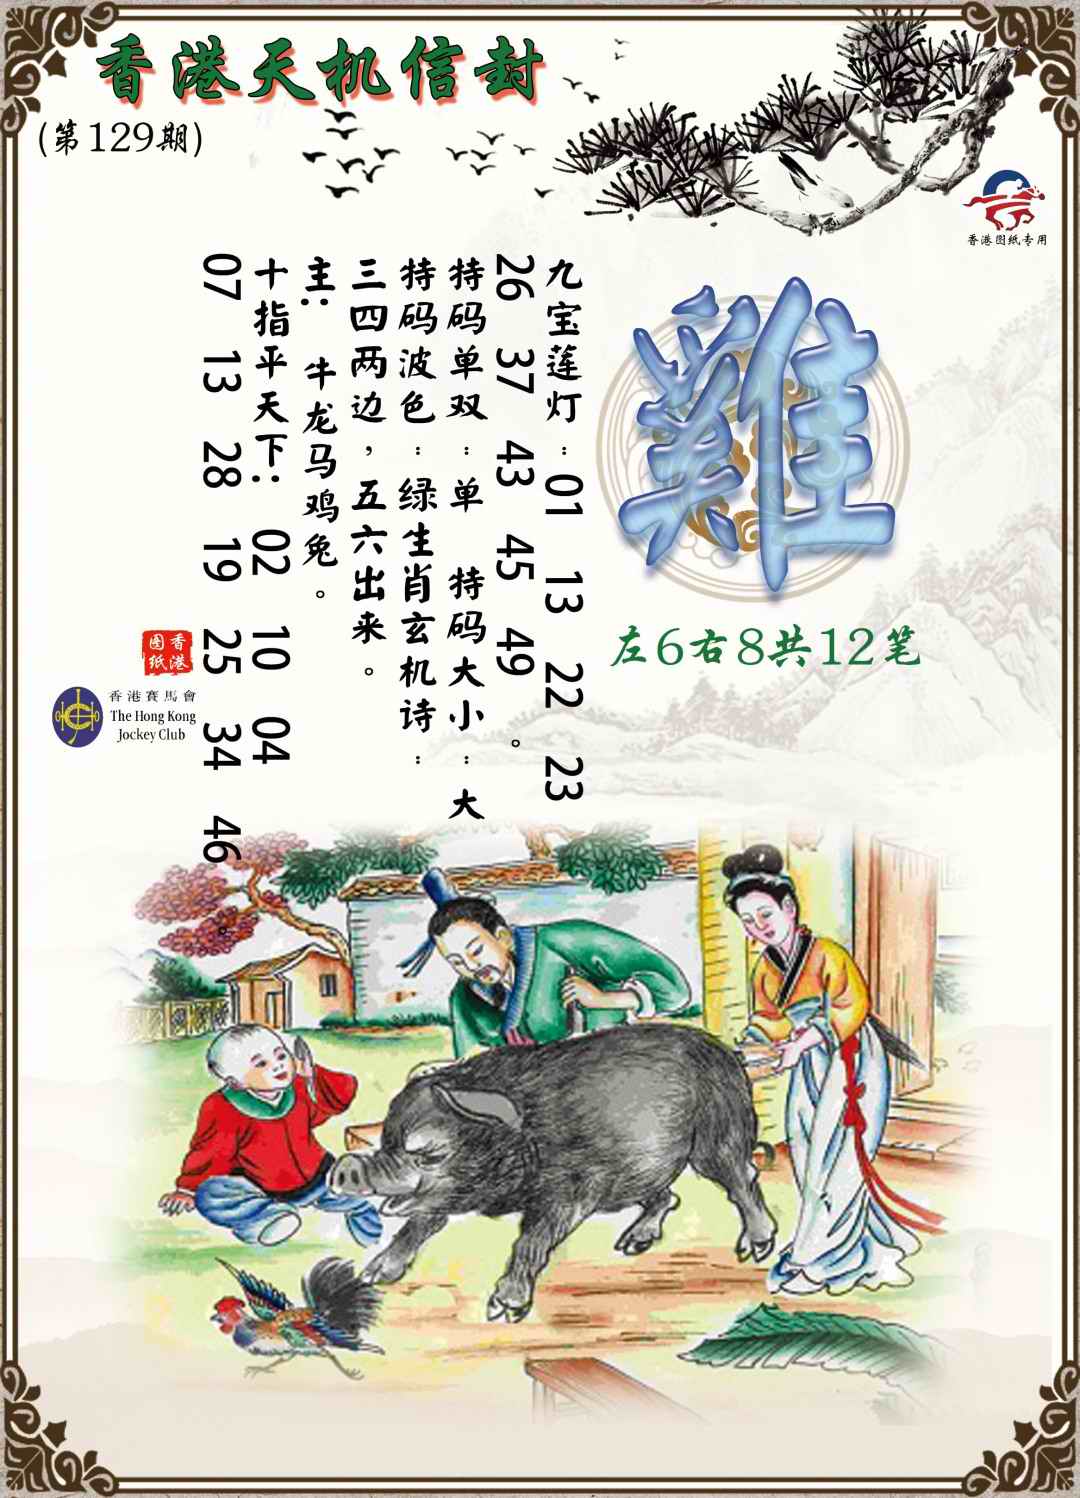 香港天机信封
(第129期)
香港图纸专用
雞
左6右8共12笔
九宝莲灯：01 13 22 23
26 37 43 45 49 。
特码单双：单 特码大小：大
特码波色：绿生肖玄机诗：
三四两边，五六出来。
主： 牛龙马鸡兔。
十指平天下： 02 10 04
07 13 28 19 25 34 46 。
香港
图纸
香港賽馬會
The Hong Kong
Jockey Club